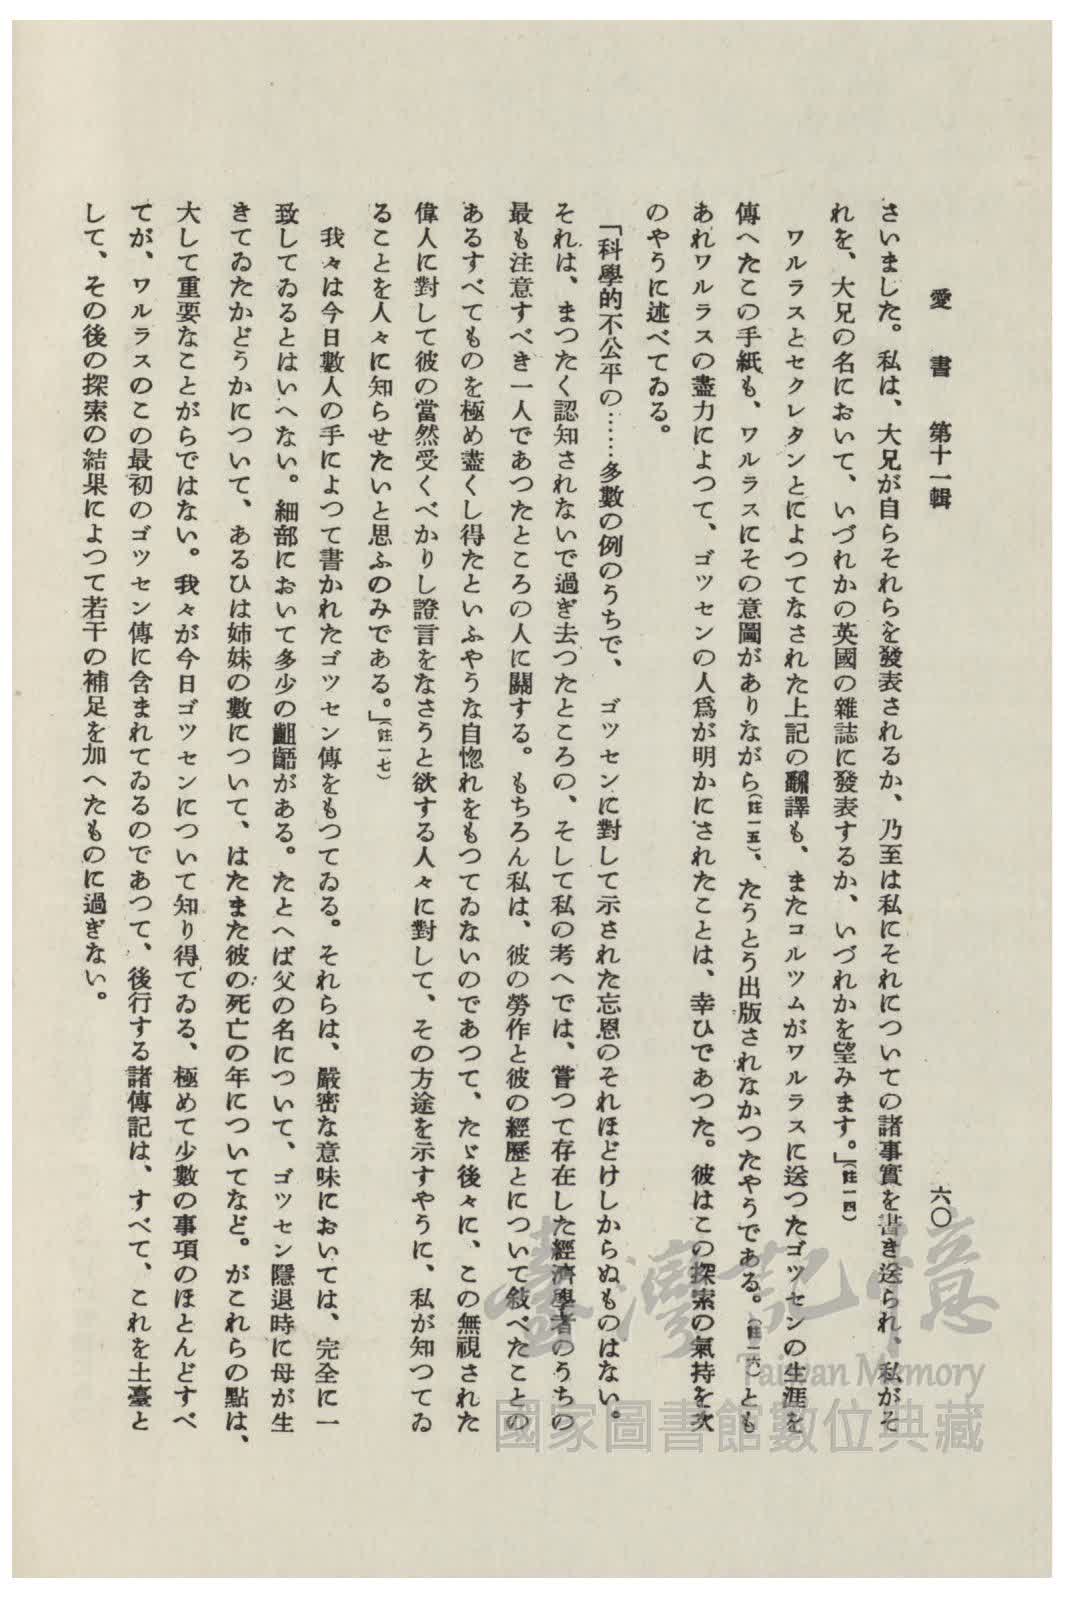 愛書　第十一輯
六〇
さいました。私は、大兄が自らそれらを發表されるか、乃至は私にそれについての諸事實を書き送られ、私がそ
れを、大兄の名において、いづれかの英國の雜誌に發表するか、いづれかを望みます。」(註一四)
ワルラスとセクレタンとによつてなされた上記の飜譯も、またコルツムがワルラスに送つたゴツセンの生涯を
傳へたこの手紙も、ワルラスにその意圖がありながら(註一五)、たうとう出版されなかつたやうである。(註一六)とも
あれワルラスの盡力によつて、ゴツセンの人爲が明かにされたことは、幸ひであつた。彼はこの探索の氣持を次
のやうに述べてゐる。
「科學的不公平の……多數の例のうちで、ゴツセンに對して示された忘恩のそれほどけしからぬものはない。
それは、まつたく認知されないで過ぎ去つたところの、そして私の考へでは、嘗つて存在した經濟學者のうちの
最も注意すべき一人であつたところの人に關する。もちろん私は、彼の勞作と彼の經歷とについて敍べたことの
あるすべてものを極め盡くし得たといふやうな自惚れをもつてゐないのであつて、たゞ後々に、この無視された
偉人に對して彼の當然受くべかりし證言をなさうと欲する人々に對して、その方途を示すやうに、私が知つてゐ
ることを人々に知らせたいと思ふのみである。」(註一七)
我々は今日數人の手によつて書かれたゴツセン傳をもつてゐる。それらは、嚴密な意味においては、完全に一
致してゐるとはいへない。細部において多少の齟齬がある。たとへば父の名について、ゴツセン隱退時に母が生
きてゐたかどうかについて、あるひは姉妹の數について、はたまた彼の死亡の年についてなど。がこれらの點は、
大して重要なことがらではない。我々が今日ゴツセンについて知り得てゐる、極めて少數の事項のほとんどすべ
てが、ワルラスのこの最初のゴツセン傳に含まれてゐるのであつて、後行する諸傳記は、すべて、これを土臺と
して、その後の探索の結果によつて若干の補足を加へたものに過ぎない。
臺灣記憶
Taiwan Memory
國家圖書館數位典藏